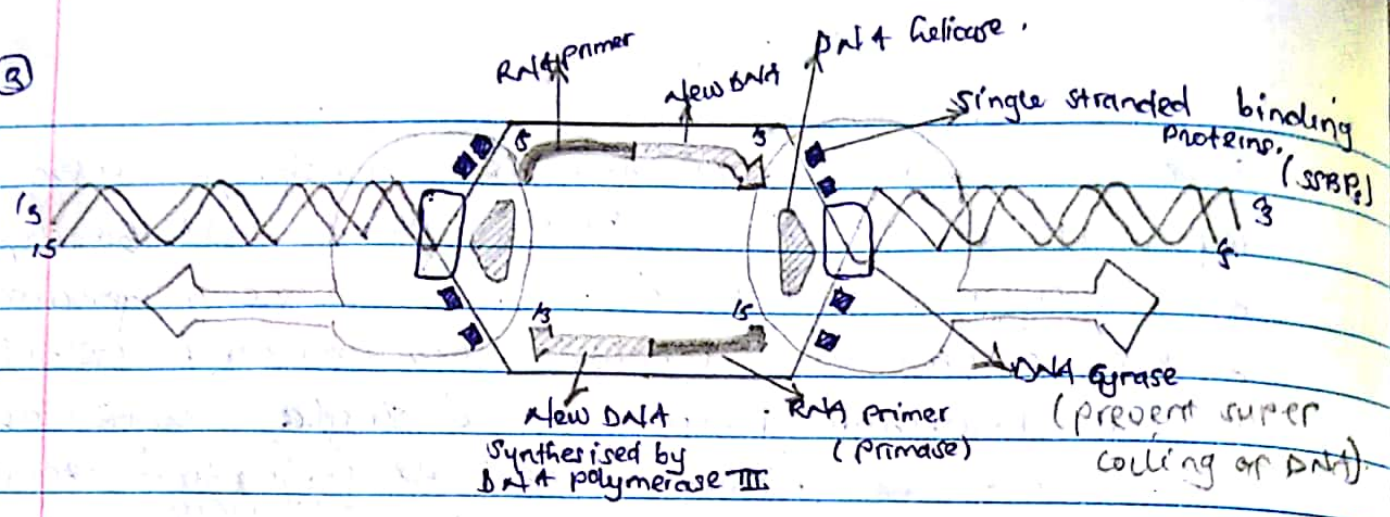 3
RNA primer
New DNA
DNA helicase.
Single stranded binding
Proteins.
(SSBPs)
5
3
13
15
3
5
13
15
New DNA.
Synthesised by
DNA polymerase III.
RNA primer
(primase)
DNA Gyrase
(prevent super
coiling of DNA).